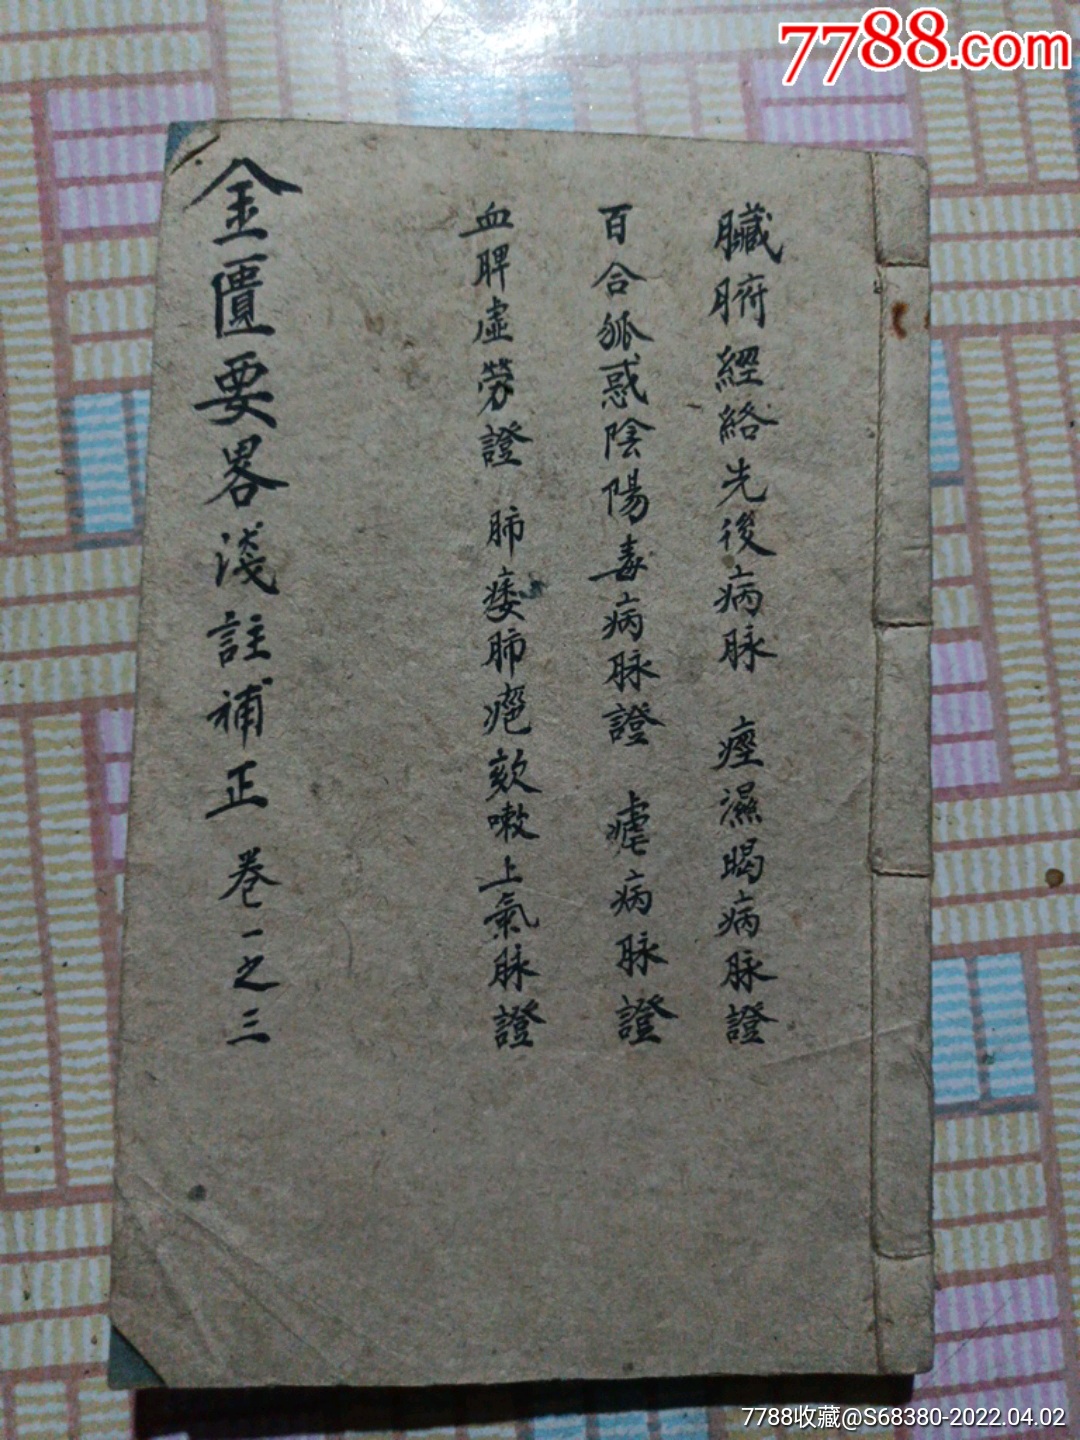 7788.com
臟腑經絡先後病脉 痙濕暍病脉證
百合狐惑陰陽毒病脉證 瘧病脉證
血脾虛勞證 肺痿肺癰欬嗽上氣脉證
金匱要畧淺註補正 卷一之三
7788收藏@S68380-2022.04.02